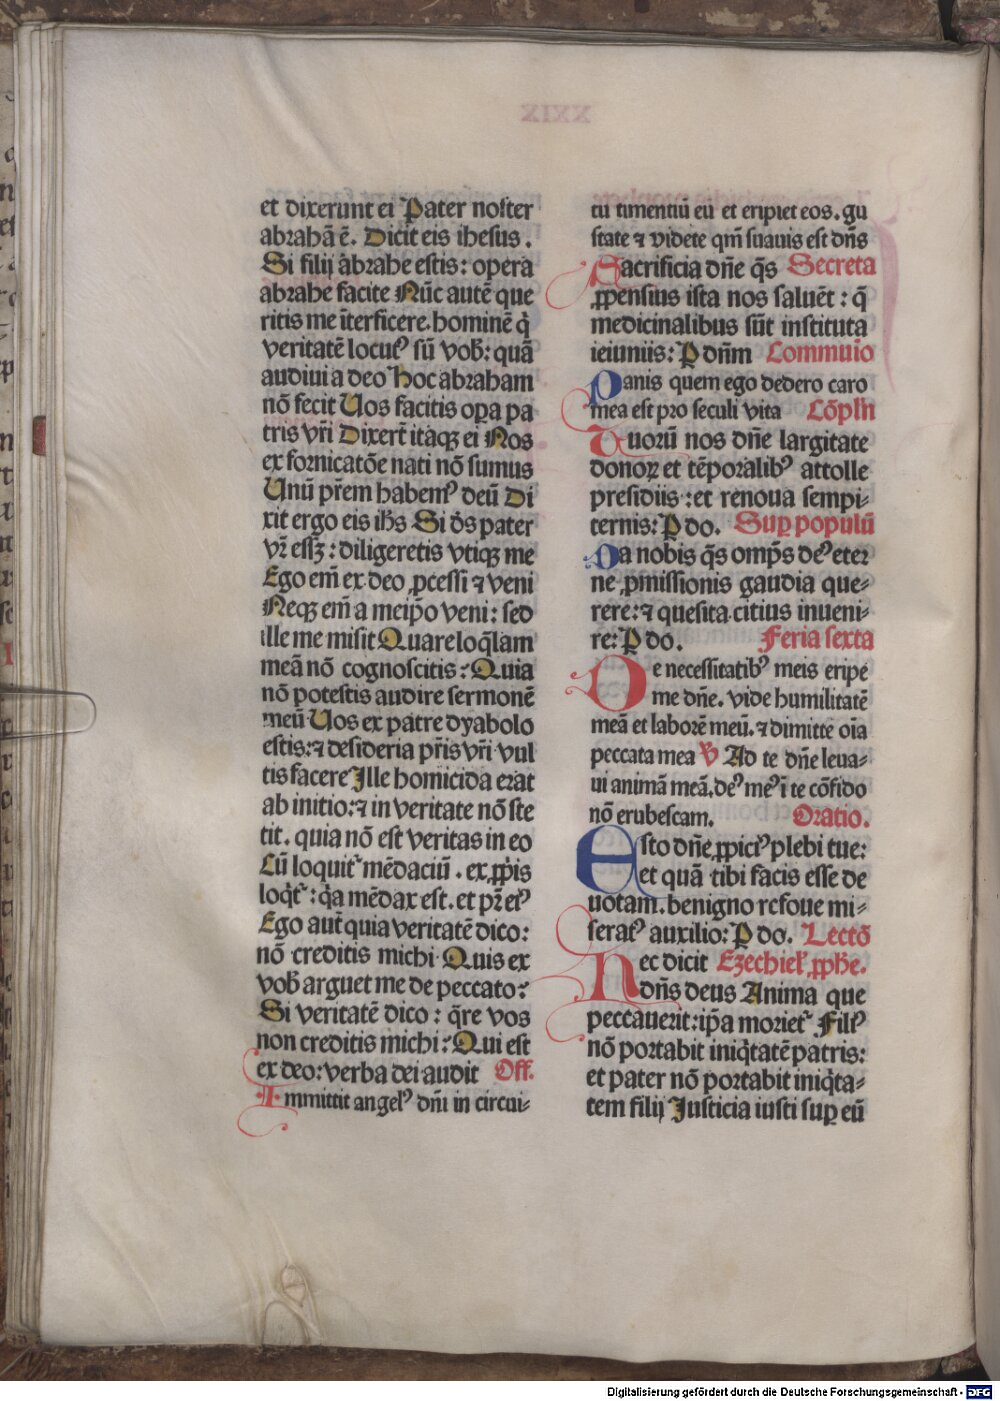 XXIX
et dixerunt ei Pater noster
abrahā ē. Dicit eis ihesus.
Si filij abrahe estis: opera
abrahe facite Nūc autē que
ritis me īterficere. hominē q̇
veritatē locutꝰ sū vob̄: quā
audiui a deo Hoc abraham
nō fecit Uos facitis oꝑa pa
tris vr̄i Dixer̄t itaqꝫ ei Nos
ex fornicatōe nati nō sumus
Unū pr̄em habemꝰ deū Di
xit ergo eis ih̄s Si ds̄ pater
vr̄ eēꝫ: diligeretis vtiqꝫ me
Ego em̄ ex deo ꝓcessi ⁊ veni
Neqꝫ em̄ a meip̄o veni: sed
ille me misit Quare loq̄lam
meā nō cognoscitis: Quia
nō potestis audire sermonē
meū Uos ex patre dyabolo
estis: ⁊ desideria pr̄is vr̄i vul
tis facere Ille homicida erat
ab initio: ⁊ in veritate nō ste
tit. quia nō est veritas in eo
Cū loquit᷑ mēdaciū. ex ꝓp̄is
loq̇t᷑: q̇a mēdax est. et pr̄ eiꝰ
Ego aut̄ quia veritatē dico:
nō creditis michi Quis ex
vob̄ arguet me de peccato:
Si veritatē dico: q̄re vos
non creditis michi: Qui est
ex deo: verba dei audit Off.
Immittit angelꝰ dn̄i in circui-
tu timentiū eū et eripiet eos. gu
state ⁊ videte qm̄ suauis est dn̄s
Sacrificia dn̄e q̄s Secreta
ꝓpensius ista nos saluēt: q̄
medicinalibus sūt instituta
ieiuniis: P dn̄m Commuīo
Panis quem ego dedero caro
mea est pro seculi vita Cōpln̄
Vuorū nos dn̄e largitate
donoꝝ et tēporalibꝰ attolle
presidiis: et renoua sempi-
ternis: P do. Suꝑ populū
Da nobis q̄s omp̄s deꝰ eter
ne ꝓmissionis gaudia que-
rere: ⁊ quesita citius inueni-
re: P do. Feria sexta
De necessitatibꝰ meis eripe
me dn̄e. vide humilitatē
meā et laborē meū. ⁊ dimitte oīa
peccata mea V Ad te dn̄e leua-
ui animā meā. deꝰ meꝰ ī te cōfido
nō erubescam. Oratio.
Esto dn̄e ꝓpiciꝰ plebi tue:
et quā tibi facis esse de
uotam. benigno refoue mi-
seratꝰ auxilio: P do. Lectō
Hec dicit Ezechiel' ꝓph̄e.
dn̄s deus Anima que
peccauerit: ip̄a moriet᷑ Filiꝰ
nō portabit iniq̇tatē patris:
et pater nō portabit iniq̇ta-
tem filij Justicia iusti suꝑ eū
Digitalisierung gefördert durch die Deutsche Forschungsgemeinschaft - DFG